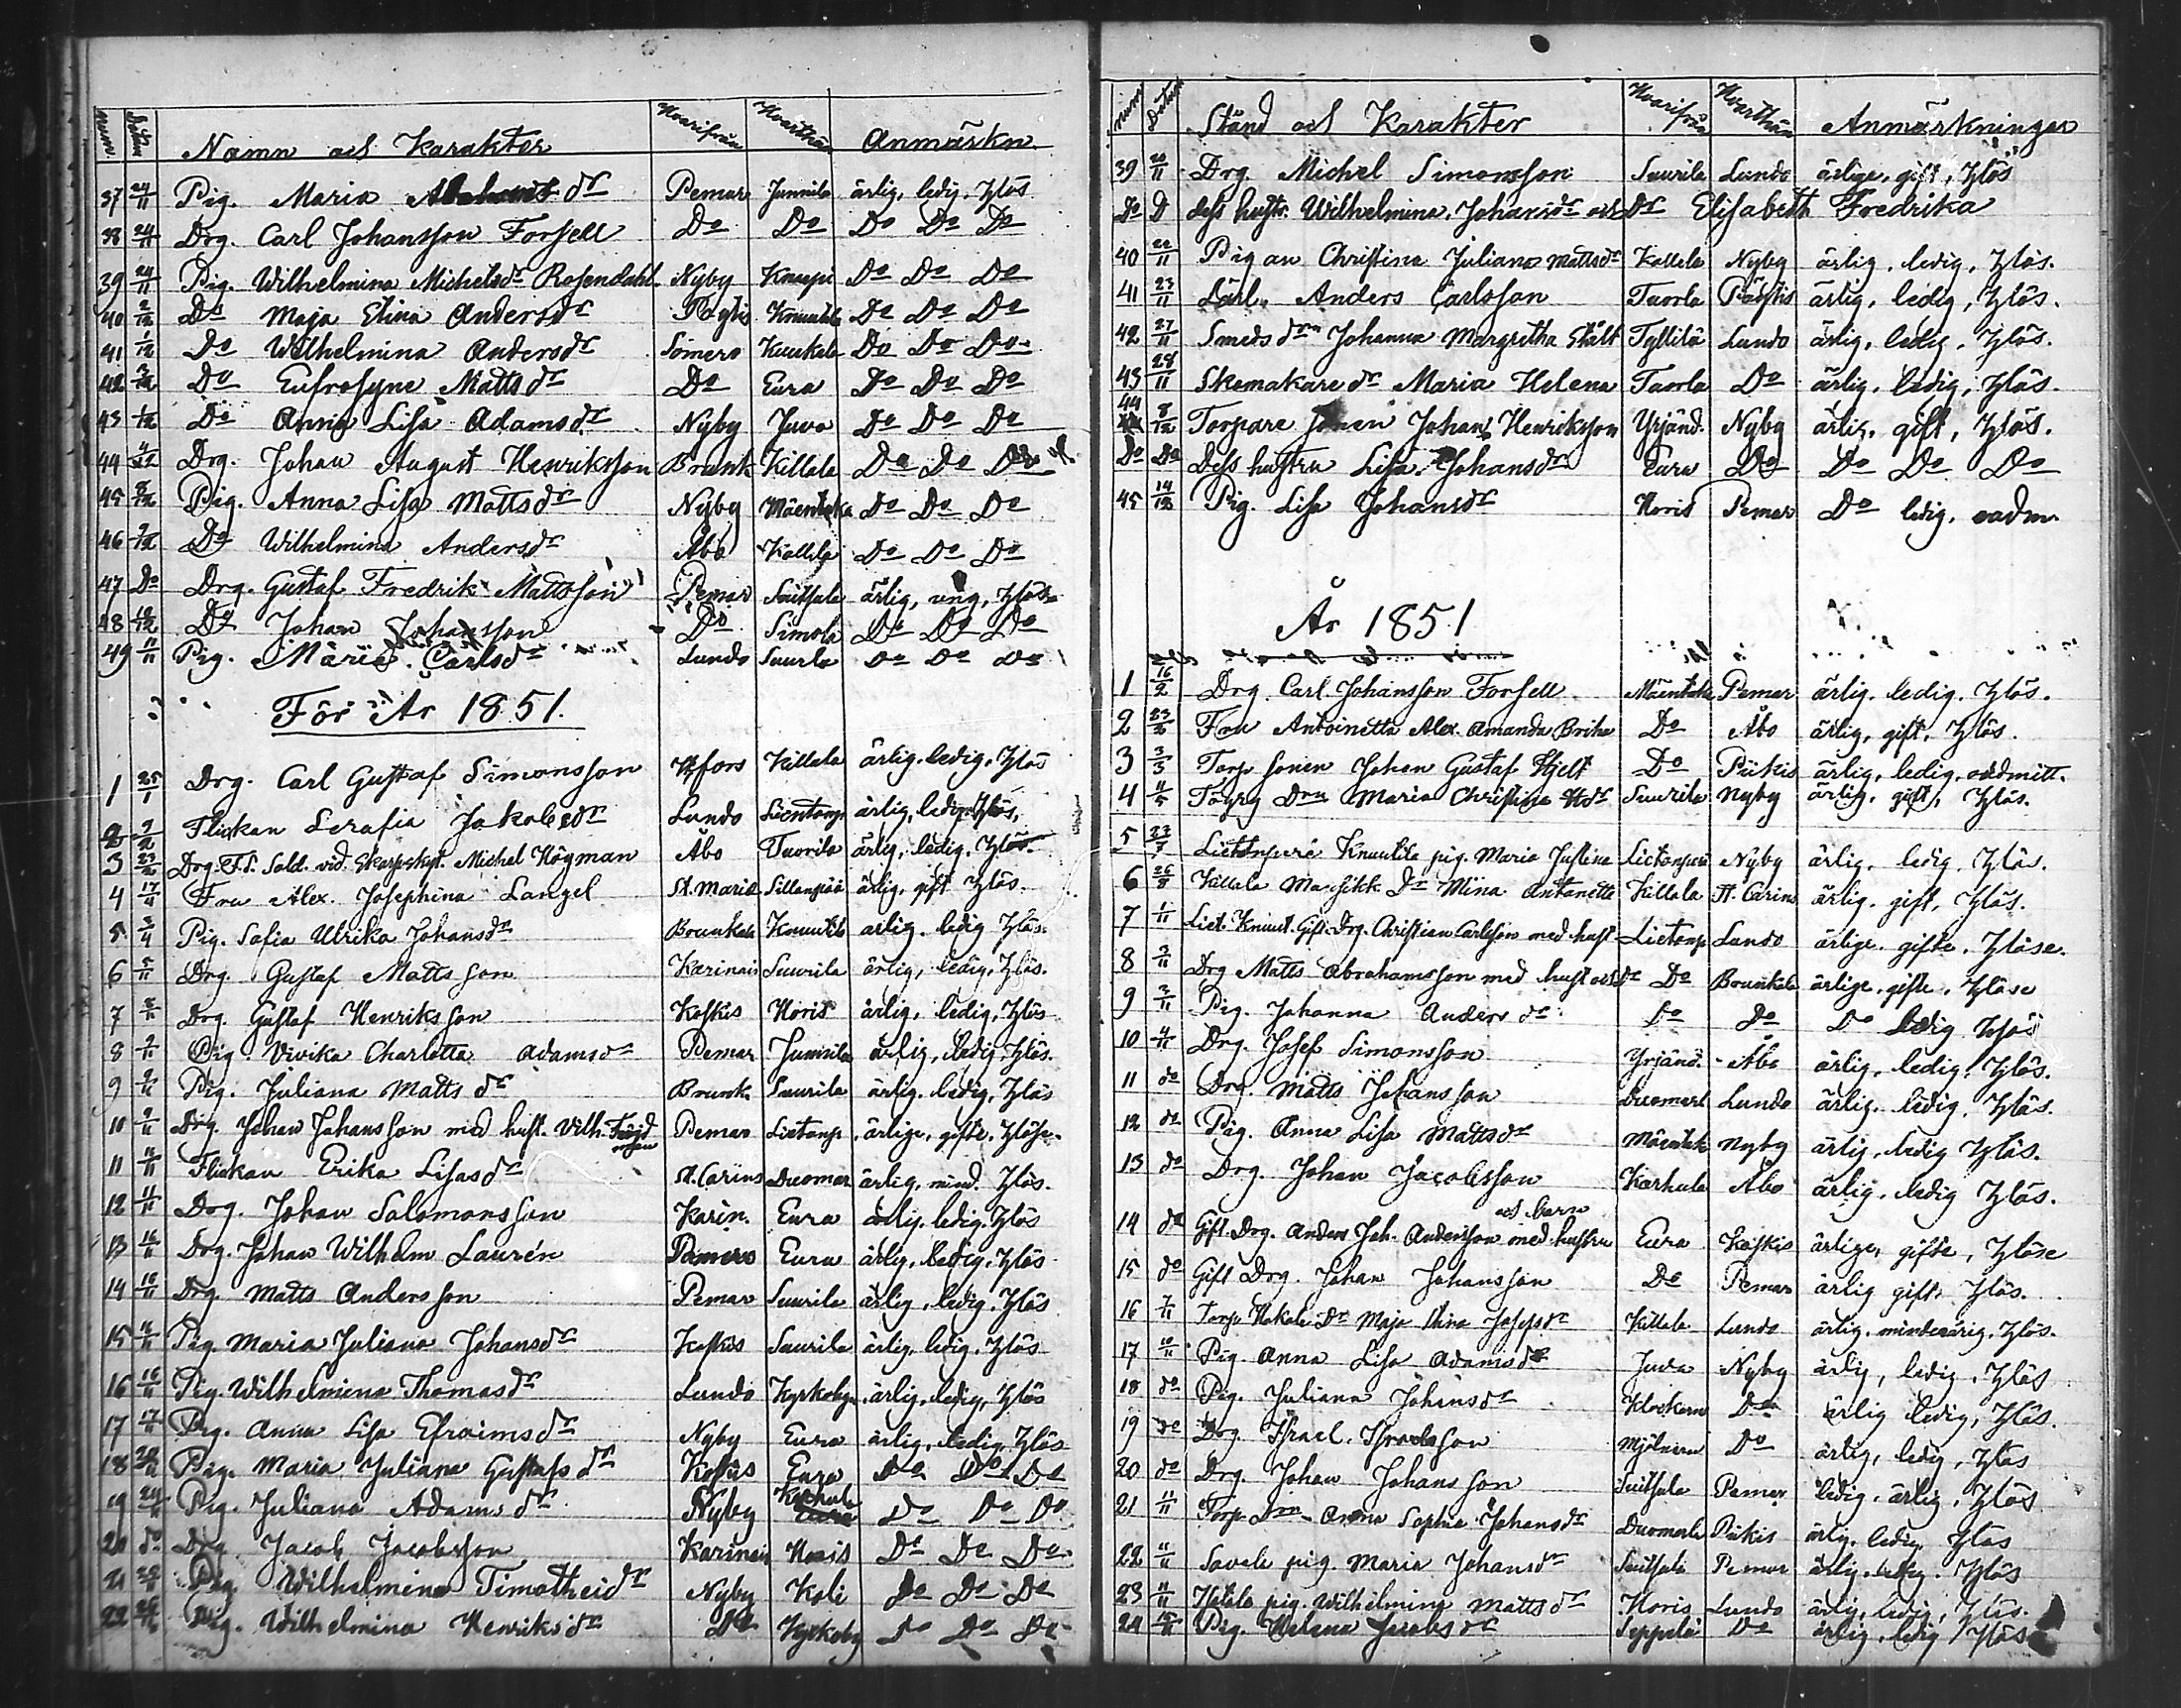 num. Datum Namn och Karakter Hvarifrån Hvarthän Anmärkn
37 24/11 Pig. Maria dr Pemar Junnila ärlig, ledig, Hlös
38 24/11 Drg. Carl Johansson Forsell Do Do Do Do Do
39 24/11 Pig. Wilhelmina Michelsdr Rosendahl Nyby Knupi Do Do Do
40 2/12 Do Maja Stina Andersdr Pöytis Knuutila Do Do Do
41 2/12 Do Wilhelmina Andersdr Somero Kuukala Do Do Do
42 3/12 Do Eufrosyne Mattsdr Do Eura Do Do Do
43 4/12 Do Anna Lisa Adamsdr Nyby Juva Do Do Do
44 4/12 Drg. Johan August Henriksson Brunk Killala Do Do Do
45 8/12 Pig. Anna Lisa Mattsdr Nyby Mäentaka Do Do Do
46 9/12 Do Wilhelmina Andersdr Åbo Kallela Do Do Do
47 Do Drg. Gustaf Fredrik Mattsson Pemar Suitsala ärlig, ung, Hlös
48 10/12 Do Johan Johansson Do Simola Do Do Do
49 11/11 Pig. Maria Carlsdr Lundo Suurla Do Do Do
För År 1851.
1 25/1 Drg. Carl Gustaf Simonsson Hfors Killala ärlig, ledig, Hlös
2 9/2 Flickan Serafia Jakobsdr Lundo Lientomp ärlig, ledig, Hlös.
3 23/2 Drg. F.S. Sold. vid Skarpskyt. Michel Högman Åbo Tuorila ärlig, ledig, Hlös
4 17/4 Fru Alex. Josephina Langel St. Marie Sillanpää ärlig, gift Hlös.
5 3/4 Pig. Sofia Ulrika Johansdr Brunkala Knuutila ärlig, ledig Hlös.
6 5/11 Drg. Gustaf Mattsson Karinais Suurila ärlig, ledig, Hlös.
7 8/11 Drg. Gustaf Henriksson Koskis Horis ärlig, ledig, Hlös
8 9/11 Pig. Vivika Charlotta Adamsdr Pemar Junnila ärlig, ledig, Hlös.
9 9/11 Pig. Juliana Mattsdr Brunk. Suurila ärlig, ledig, Hlös
10 9/11 Drg. Johan Johansson med hust. Vilh. Pemar Lietomp ärlige, gifte, Hlöse.
11 11/11 Flickan Erika Lisasdr St. Carins Duomar ärlig, mind. Hlös.
12 11/11 Drg. Johan Salomonsson Karin. Eura ärlig, ledig, Hlös
13 16/11 Drg. Johan Wilhelm Laurén Pemar Eura ärlig, ledig, Hlös
14 16/11 Drg Matts Andersson Pemar Suurila ärlig, ledig, Hlös
15 16/11 Pig. Maria Juliana Johansdr Koskis Suurila ärlig, ledig, Hlös
16 16/11 Pig. Wilhelmina Thomasdr Lundo Kyrkoby ärlig, ledig, Hlös
17 17/11 Pig. Anna Lisa Efraimsdr Nyby Eura ärlig, ledig, Hlös
18 20/11 Pig. Maria Juliana Gustafsdr Koskis Eura Do Do Do
19 24/11 Pig. Juliana Adamsdr Nyby Karhula Do Do Do
20 do Drg Jacob Jacobsson Karinais Horis Do Do Do
21 Pig. Wilhelmina Timotheidr Nyby Koli Do Do Do
22 Pig. Wilhelmina Henriksdr Do Kyrkoby Do Do Do
num Datum Stånd och Karakter Hvarifrån Hvarthän Anmärkningar
39 20/11 Drg. Michel Simonsson Suurila Lundo ärlige, gift, Hlös
Do D dess hustr. Wilhelmina Johansdr och Dr Elisabeth Fredrika
40 22/11 Pigan Christina Juliana Mattsdr Kallela Nyby ärlig, ledig, Hlös.
41 23/11 Karl. Anders Carlsson Tuorla Pöytis ärlig, ledig, Hlös.
42 27/11 Smeds drn Johanna Margretha Stält Tyllilä Lundo ärlig, ledig, Hlös.
43 28/11 Skomakare dr Maria Helena Tuorla Do ärlig, ledig, Hlös.
44 8/12 Torpare sonen Johan Henriksson Yrjänä. Nyby ärlig, gift, Hlös.
Do Do Dess hustru Lisa Johansdr Eura Do Do Do Do
45 14/12 Pig. Lisa Johansdr Horis Pemar Do ledig, oadm.
År 1851
1 16/2 Drg. Carl Johansson Forsell Mäentaka Pemar ärlig, ledig, Hlös.
2 23/2 Fru Antoinetta Alex. Amanda Do Åbo ärlig, gift, Hlös.
3 3/3 Torp sonen Johan Gustaf Hjelt Do Piikis ärlig, ledig, oadmitt.
4 11/5 Drn Maria Christina Suurila Nyby ärlig, gift, Hlös.
5 23/7 Knuutila pig. Maria Justina Lietonperä Nyby ärlig, ledig, Hlös.
6 26/8 Killala Dr Mina Antonette Killala St. Carins ärlig, gift, Hlös.
7 1/11 Liet. Knuut. Gift. Drg. Christian Carlsson med hust Lietonp Lundo ärlige, gifte, Hlöse.
8 2/11 Drg Matts Abrahamsson med hust och dr Do Brunkala ärlige, gifte, Hlöse
9 2/11 Pig. Johanna Andersdr Do Do Do ledig Hlös
10 4/11 Drg. Josef Simonsson Yrjänä. Åbo ärlig, ledig, Hlös.
11 do Drg. Matts Johansson Duomarl Lundo ärlig, ledig, Hlös.
12 do Pig. Anna Lisa Mattsdr Mäentak Nyby ärlig, ledig Hlös.
13 do Drg. Johan Jacobsson Karhula Åbo ärlig, ledig Hlös.
14 do Gift Drg. Anders Joh. Andersson med hustru och barn Eura Koskis ärlige, gifte, Hlöse
15 do Gift Drg. Johan Johansson Do Pemar ärlig gift, Hlös.
16 7/11 Torp. Dr Maja Stina Josefsdr Killala Lundo ärlig, minderårig, Hlös.
17 10/11 Pig. Anna Lisa Adamsdr Juva Nyby ärlig, ledig, Hlös
18 do Pig. Juliana Johansdr Klockarn Do ärlig ledig, Hlös.
19 do Drg. Israel Israelsson Mjölnarn Do ärlig, ledig, Hlös
20 do Drg. Johan Johansson Suitsala Pemar ledig, ärlig, Hlös
21 11/11 Torp. Drn Anna Sophia Johansdr Duomarla Piikis ärlig, ledig, Hlös
22 11/11 Savela pig. Maria Johansdr Suitsala Pemar ärlig, ledig, Hlös
23 11/11 pig. Wilhelmina Mattsdr Horis Lundo ärlig, ledig, Hlös.
24 Pig. Helena Jacobsdr Seppälä Do ärlig, ledig Hlös